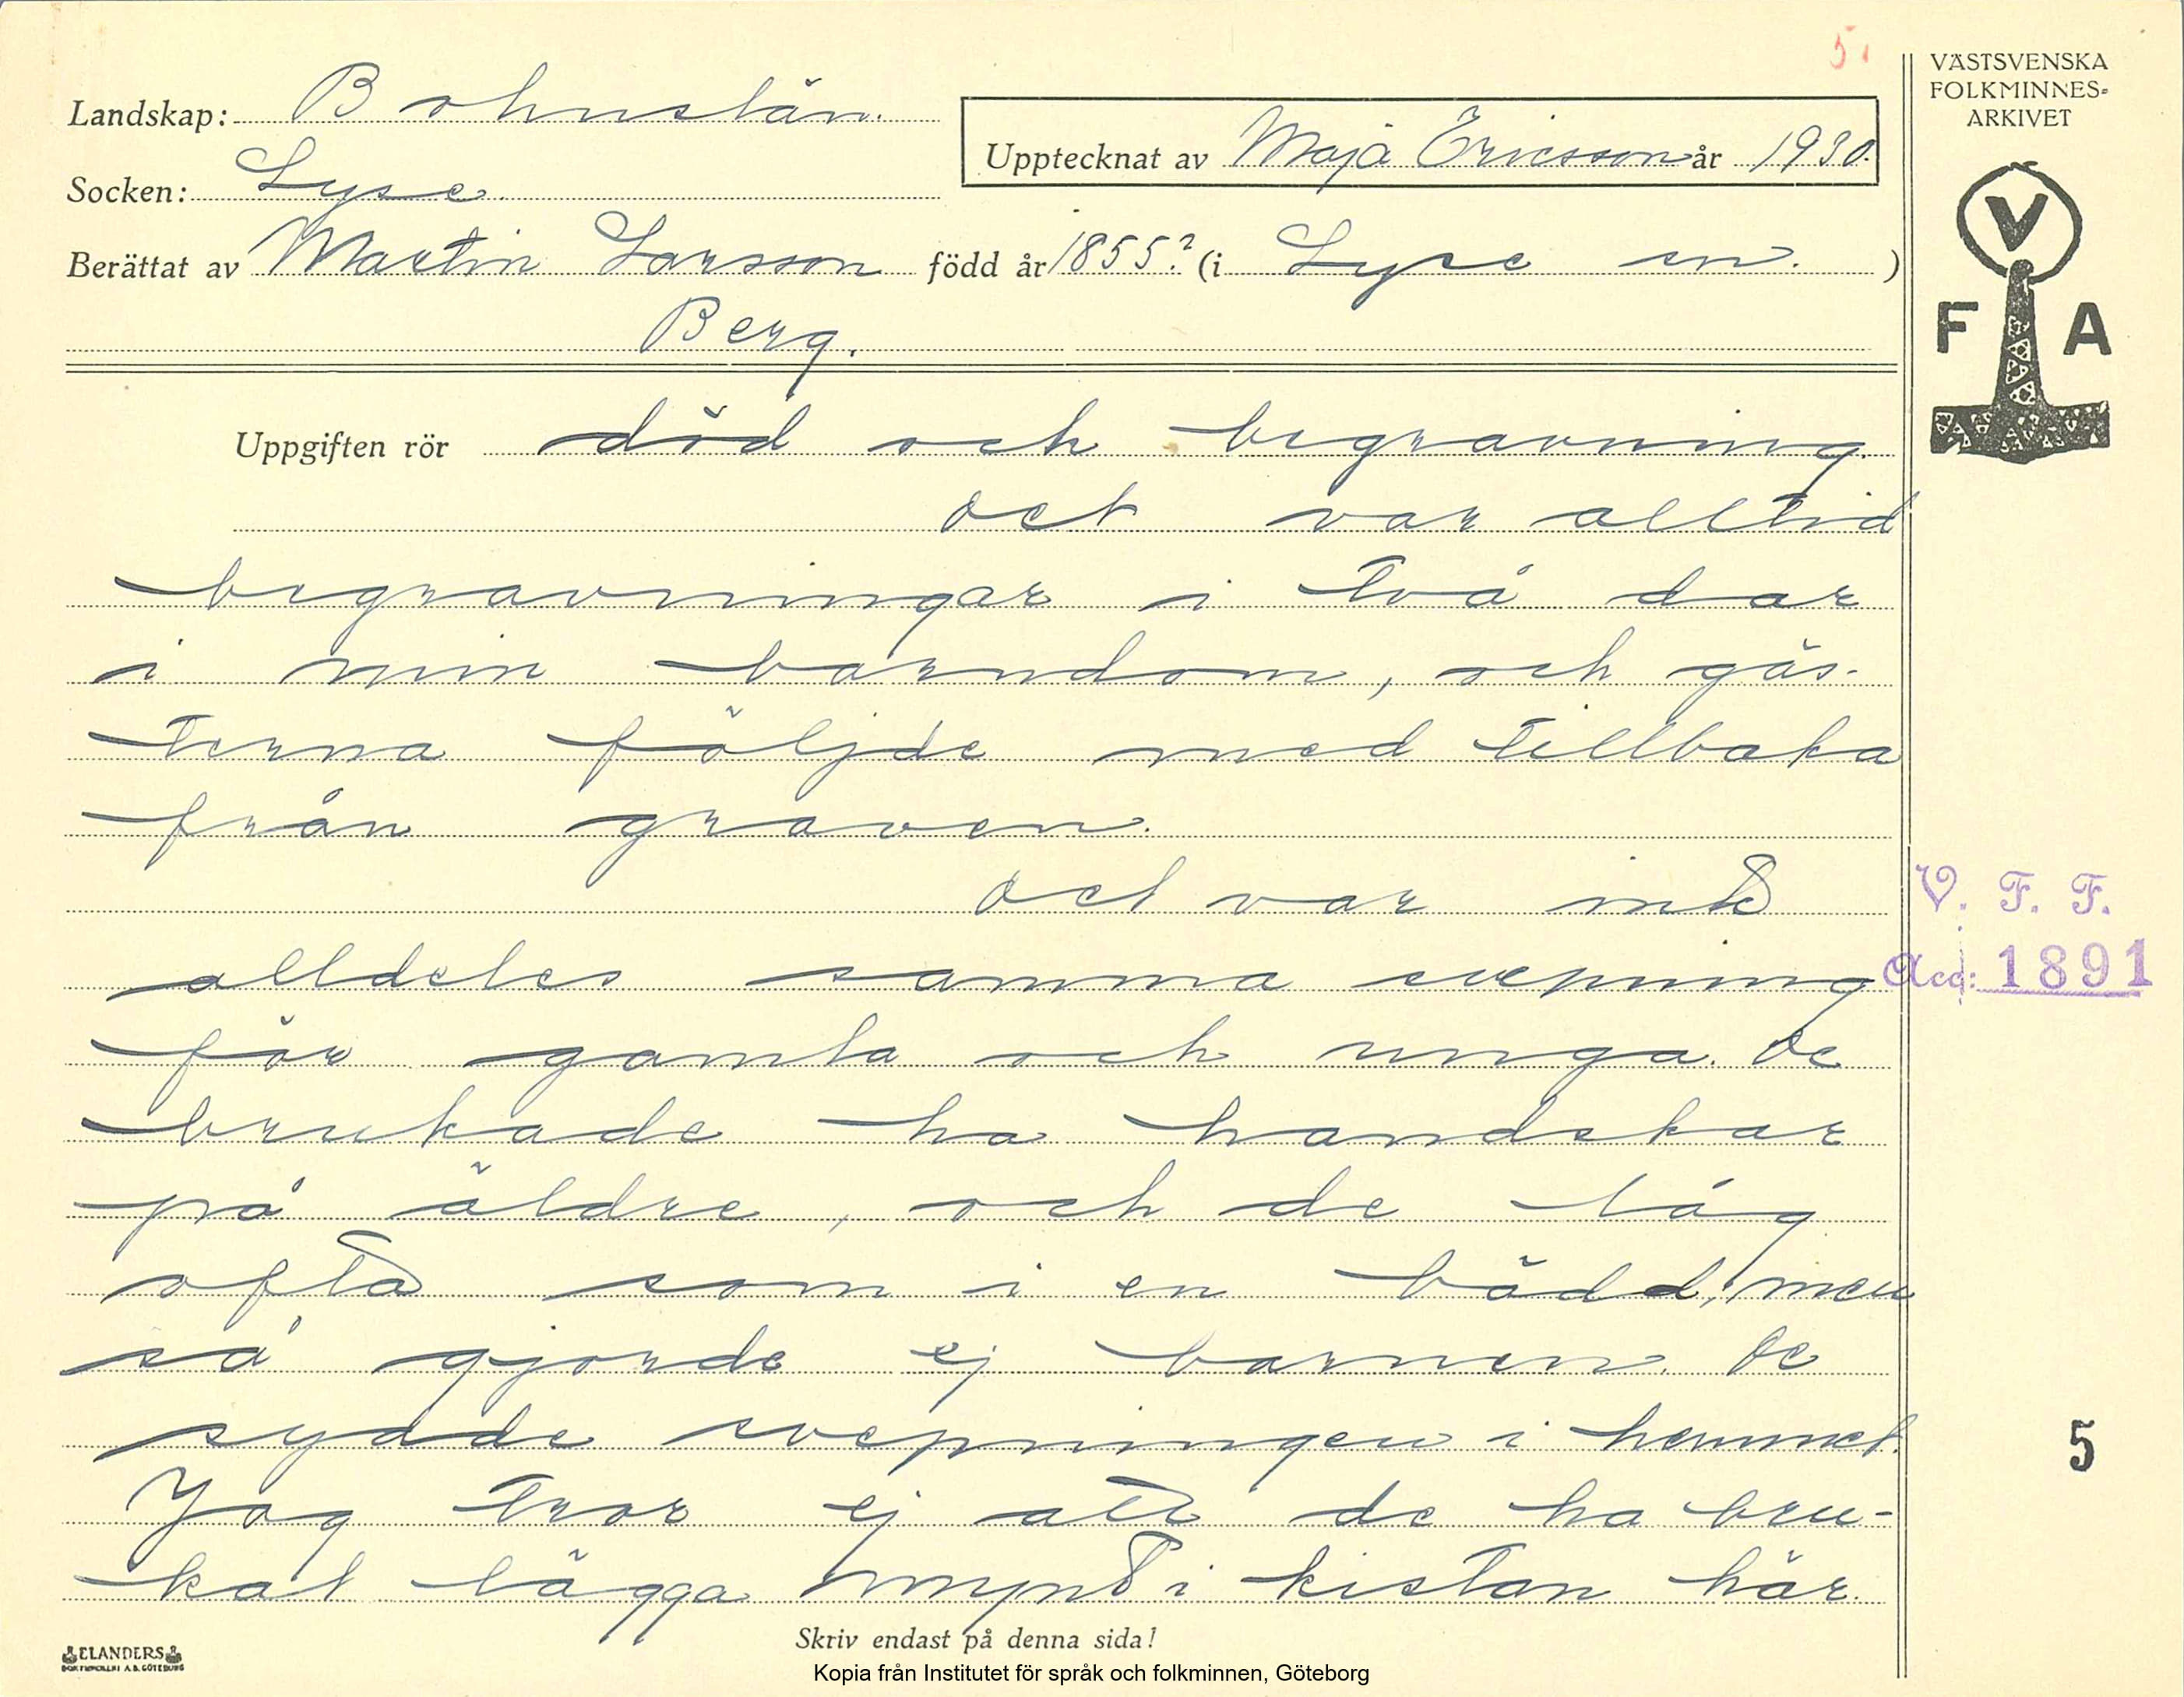 5.
VÄSTSVENSKA
FOLKMINNES-
ARKIVET
Landskap: Bohuslän.
Upptecknat av Maja Ericsson år 1930.
Socken: Lyse.
Berättat av Martin Larsson född år 1855? (i Lyse sn. )
Berg.
V
F A
Uppgiften rör död och begravning.
Det var alltid
begravningar i två dar
i min barndom, och gäs-
terna följde med tillbaka
från graven.
Det var inte
alldeles samma svepning
för gamla och unga. De
brukade ha handskar
på äldre, och de låg
ofta som i en bädd, men
så gjorde ej barnen. De
sydde svepningen i hemmet.
Jag tror ej att de ha bru-
kat lägga mynt i kistan här.
V. F. F.
Acc: 1891
5
Skriv endast på denna sida!
ELANDERS
BOKTRYCKERI A.B. GÖTEBORG
Kopia från Institutet för språk och folkminnen, Göteborg